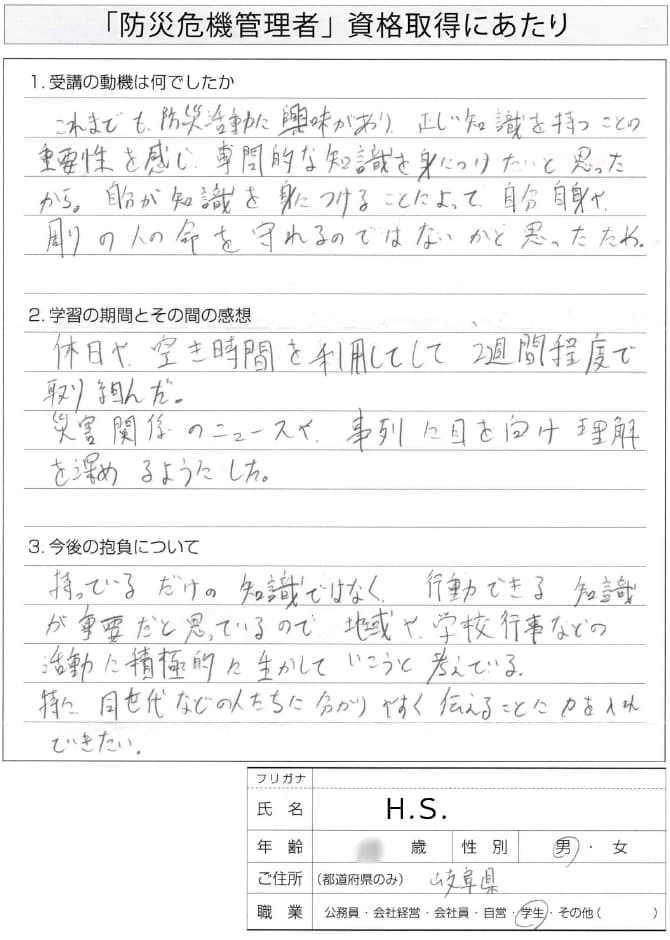 「防災危機管理者」資格取得にあたり
1. 受講の動機は何でしたか
これまでも、防災活動に興味があり、正しい知識を持つことの
重要性を感じ、専門的な知識を身につけたいと思った
から。自分が知識を身につけることによって、自分自身や、
周りの人の命を守れるのではないかと思ったため。
2. 学習の期間とその間の感想
休日や、空き時間を利用してして 2週間程度で
取り組んだ。
災害関係のニュースや、事列に目を向け理解
を深めるようにした。
3. 今後の抱負について
持っているだけの知識ではなく、行動できる知識
が重要だと思っているので、地域や、学校行事などの
活動に積極的に生かしていこうと考えている。
特に同世代などの人たちに分かりやすく伝えることに力を入れ
できたい。
フリガナ
氏名 H.S.
年齢 歳 性別 男・女
ご住所 (都道府県のみ) 岐阜県
職業 公務員・会社経営・会社員・自営・学生・その他( )